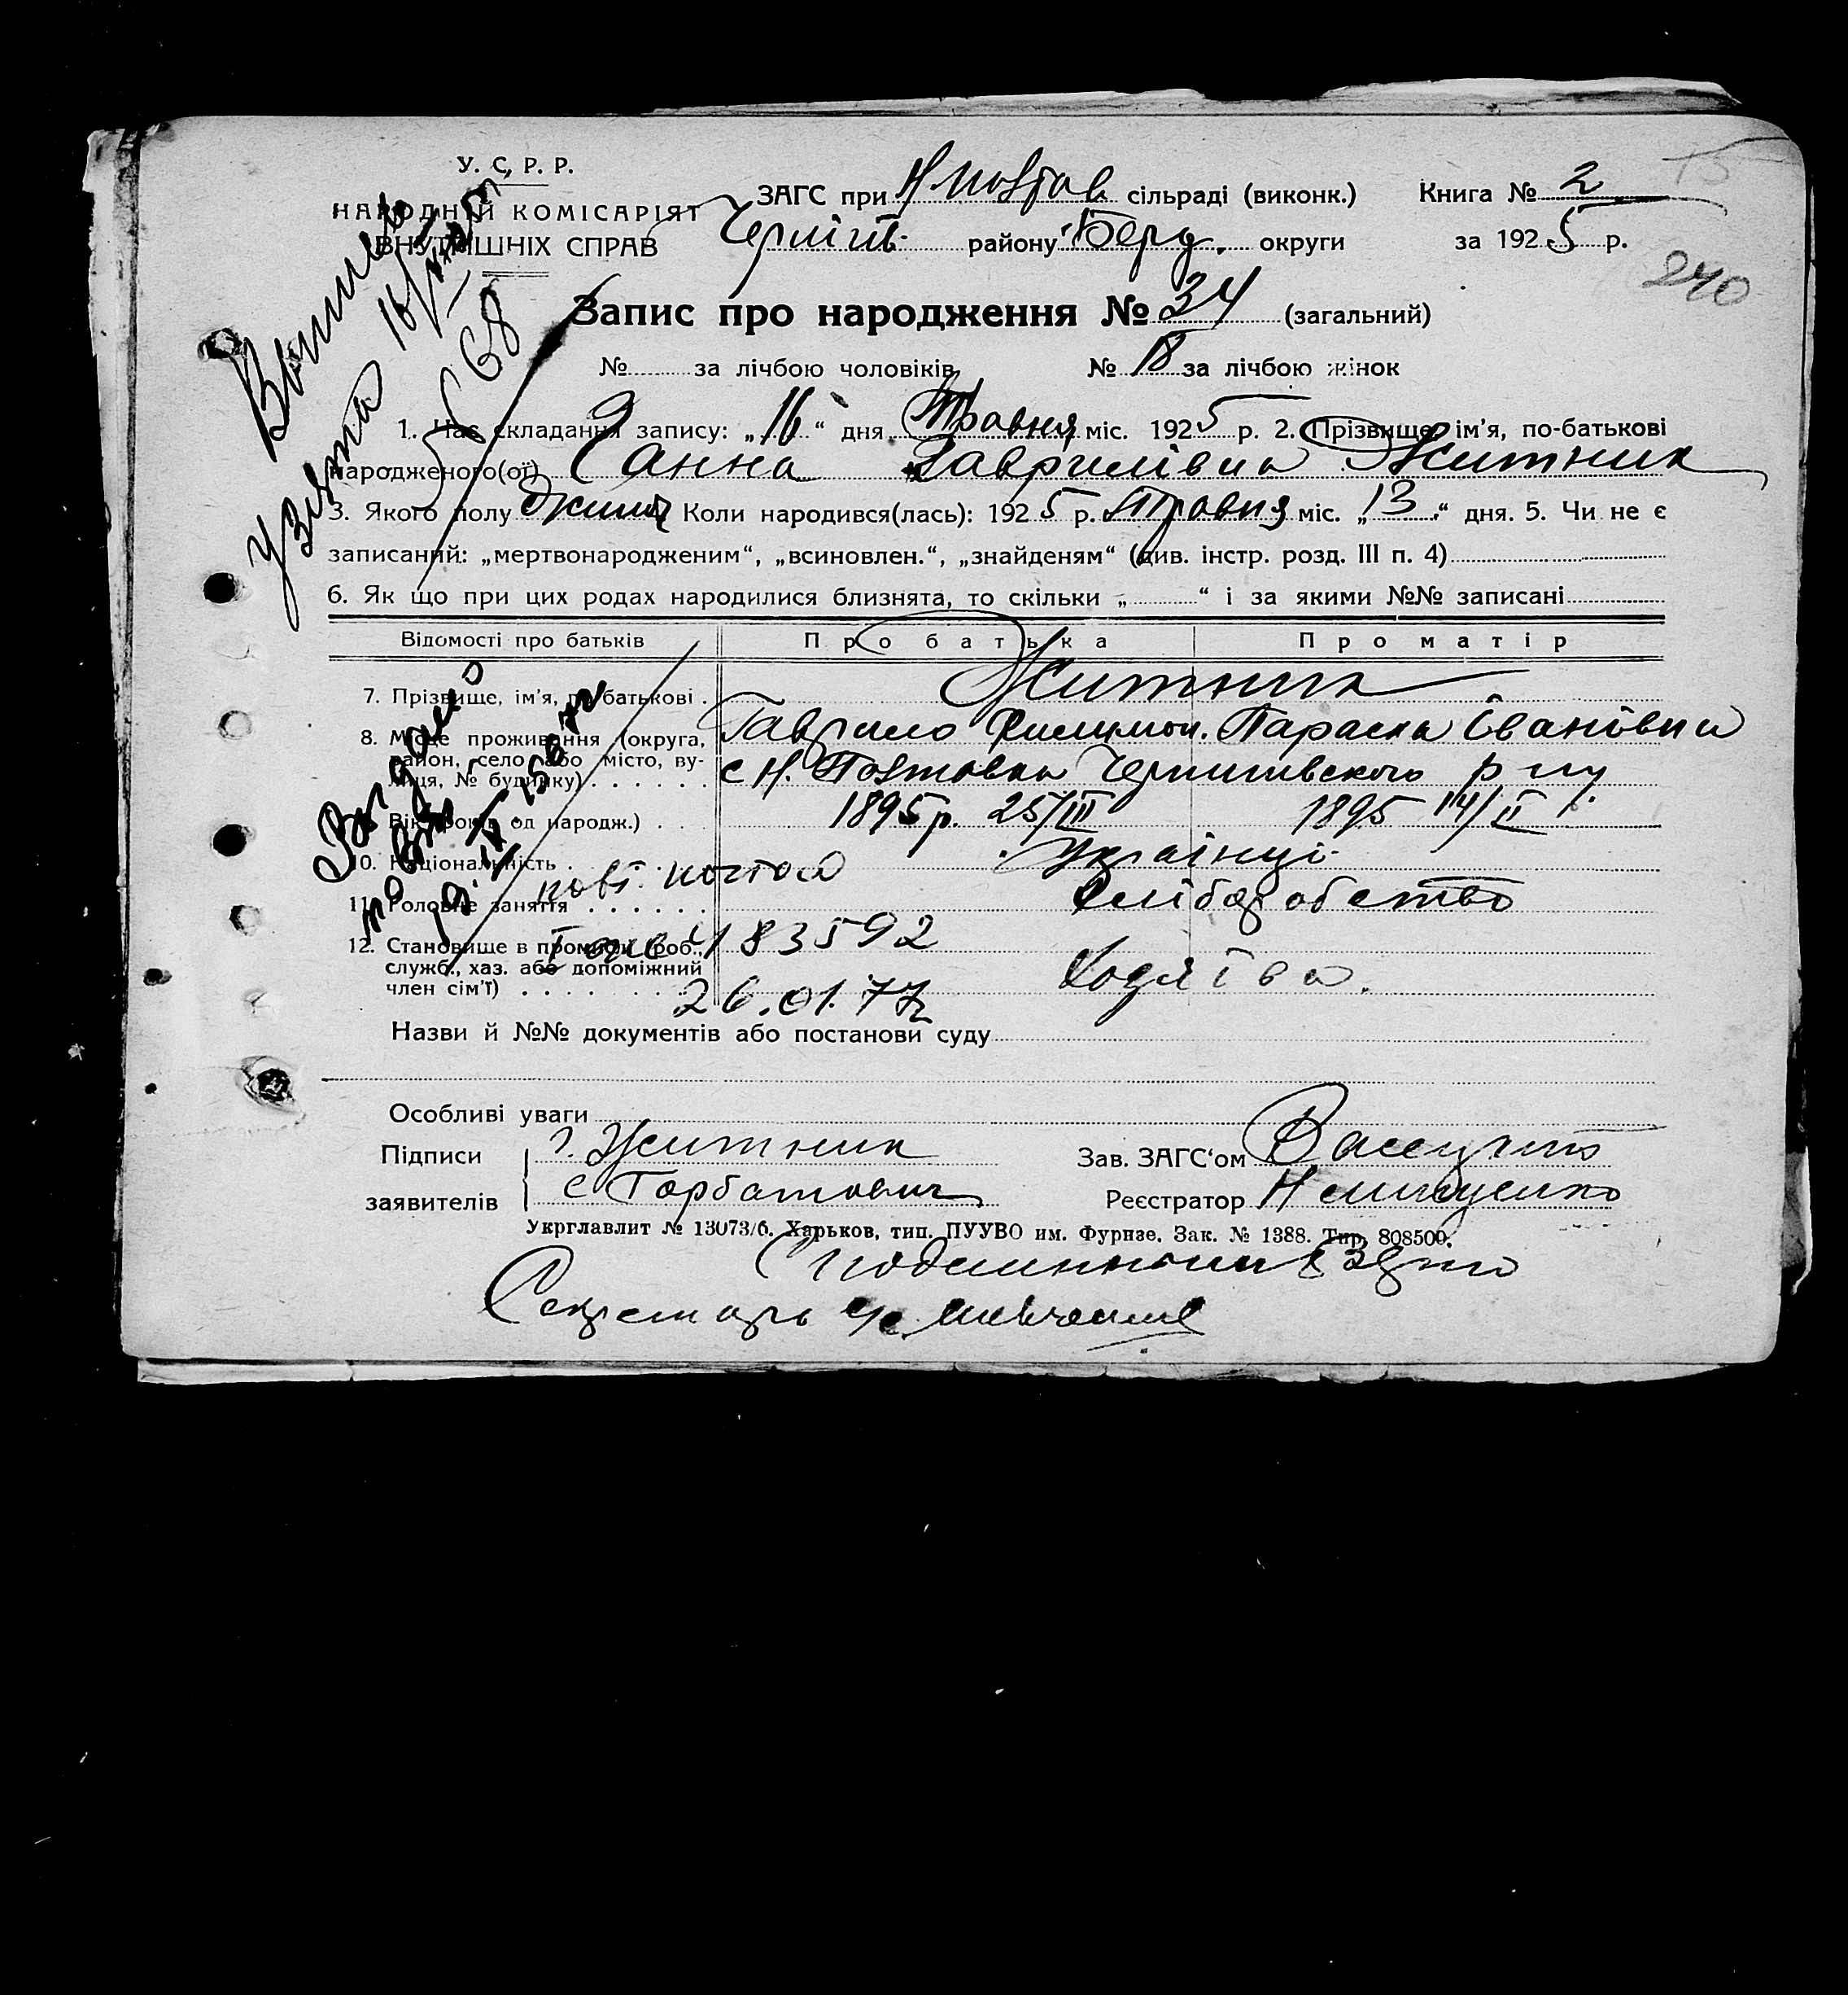 У. С. Р. Р.
НАРОДНІЙ КОМІСАРІЯТ
ВНУТРІШНІХ СПРАВ
ЗАГС при Н Полтав сільраді (виконк.) Книга № 2 15
Черніг. району Берд. округи за 1925 р.
240
Запис про народження № 34 (загальний)
№ за лічбою чоловіків № 18 за лічбою жінок
1. Час складання запису: „16“ дня Травня міс. 1925 р. 2. Прізвище, ім'я, по-батькові
народженого(ої) Ганна Гаврилівна Житник
3. Якого полу жіноч Коли народився(лась): 1925 р. Травня міс. „13“ дня. 5. Чи не є
записаний: „мертвонародженим“, „всиновлен.“, „знайденям“ (див. інстр. розд. III п. 4)
6. Як що при цих родах народилися близнята, то скільки „ “ і за якими №№ записані
Відомості про батьків Про батька Про матір
7. Прізвище, ім'я, по батькові Житник
Гаврило Филимон. Параска Івановна
8. Місце проживання (округа, район, село або місто, вулиця, № будинку) с Н. Полтавка Чернигивского р ну
Вік (років од народж.) 1895 р. 25/III 1895 14/II
10. Національність Українці
11. Головне заняття Хліборобство
12. Становище в промислі (роб., служб., хаз. або допоміжний член сім'ї) Хозяїва.
183592
26.01.77
Назви й №№ документів або постанови суду
Особливі уваги
Підписи заявителів Г. Житник
С Горбатович
Зав. ЗАГС'ом
Реєстратор
Укрглавлит № 13073/6. Харьков, тип. ПУУВО им. Фурнзе. Зак. № 1388. Тир. 808500.
С подлинным
Секретарь
узята 16/
68